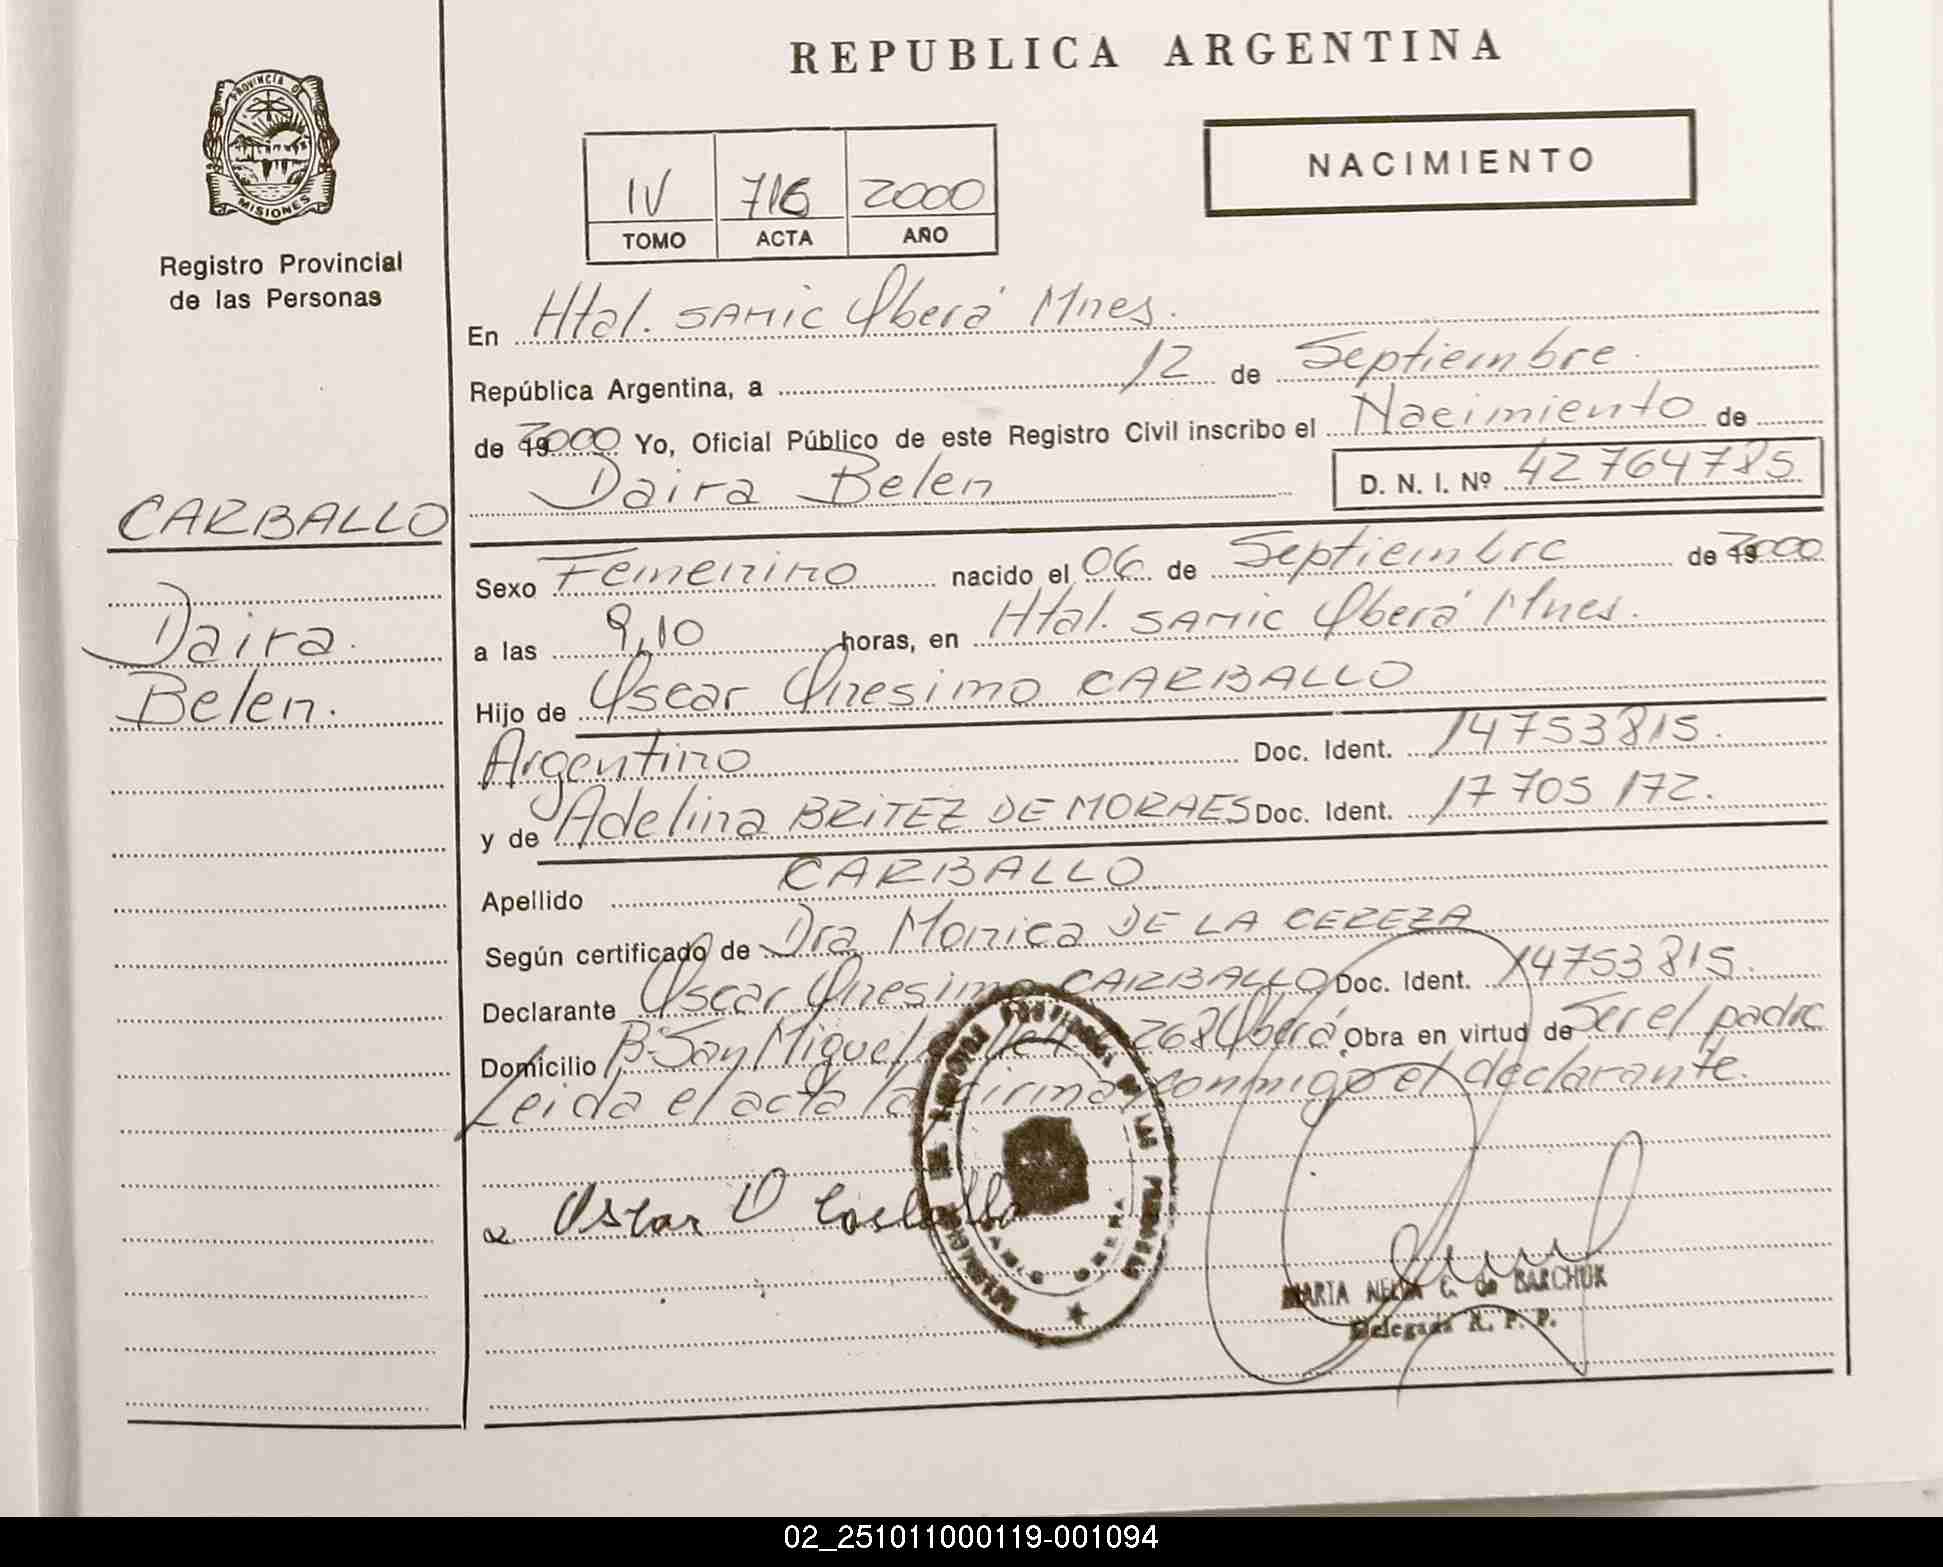 REPUBLICA ARGENTINA
PROVINCIA DE
MISIONES
Registro Provincial
de las Personas
IV 716 2000
TOMO ACTA AÑO
NACIMIENTO
En Htal. SAMIC Oberá Mnes.
República Argentina, a 12 de Septiembre.
de 2000 Yo, Oficial Público de este Registro Civil inscribo el Nacimiento de
Daira Belen D. N. I. Nº 42764785
CARBALLO
Daira.
Belen.
Sexo Femenino nacido el 06 de Septiembre de 2000
a las 9,10 horas, en Htal. SAMIC Oberá Mnes.
Hijo de Oscar Onesimo CARBALLO
Argentino Doc. Ident. 14753815.
y de Adelina BRITEZ DE MORAES Doc. Ident. 17 705 172.
Apellido CARBALLO
Según certificado de Dra Monica DE LA CEREZA
Declarante Oscar Onesimo CARBALLO Doc. Ident. 14753815.
Domicilio B: San Miguel 268 Oberá Obra en virtud de Ser el padre
Leida el acta la firma conmigo el declarante.
Oscar O Carballo
MARIA NELIDA C. de BARCHUK
Delegada R. P. P.
02_251011000119-001094